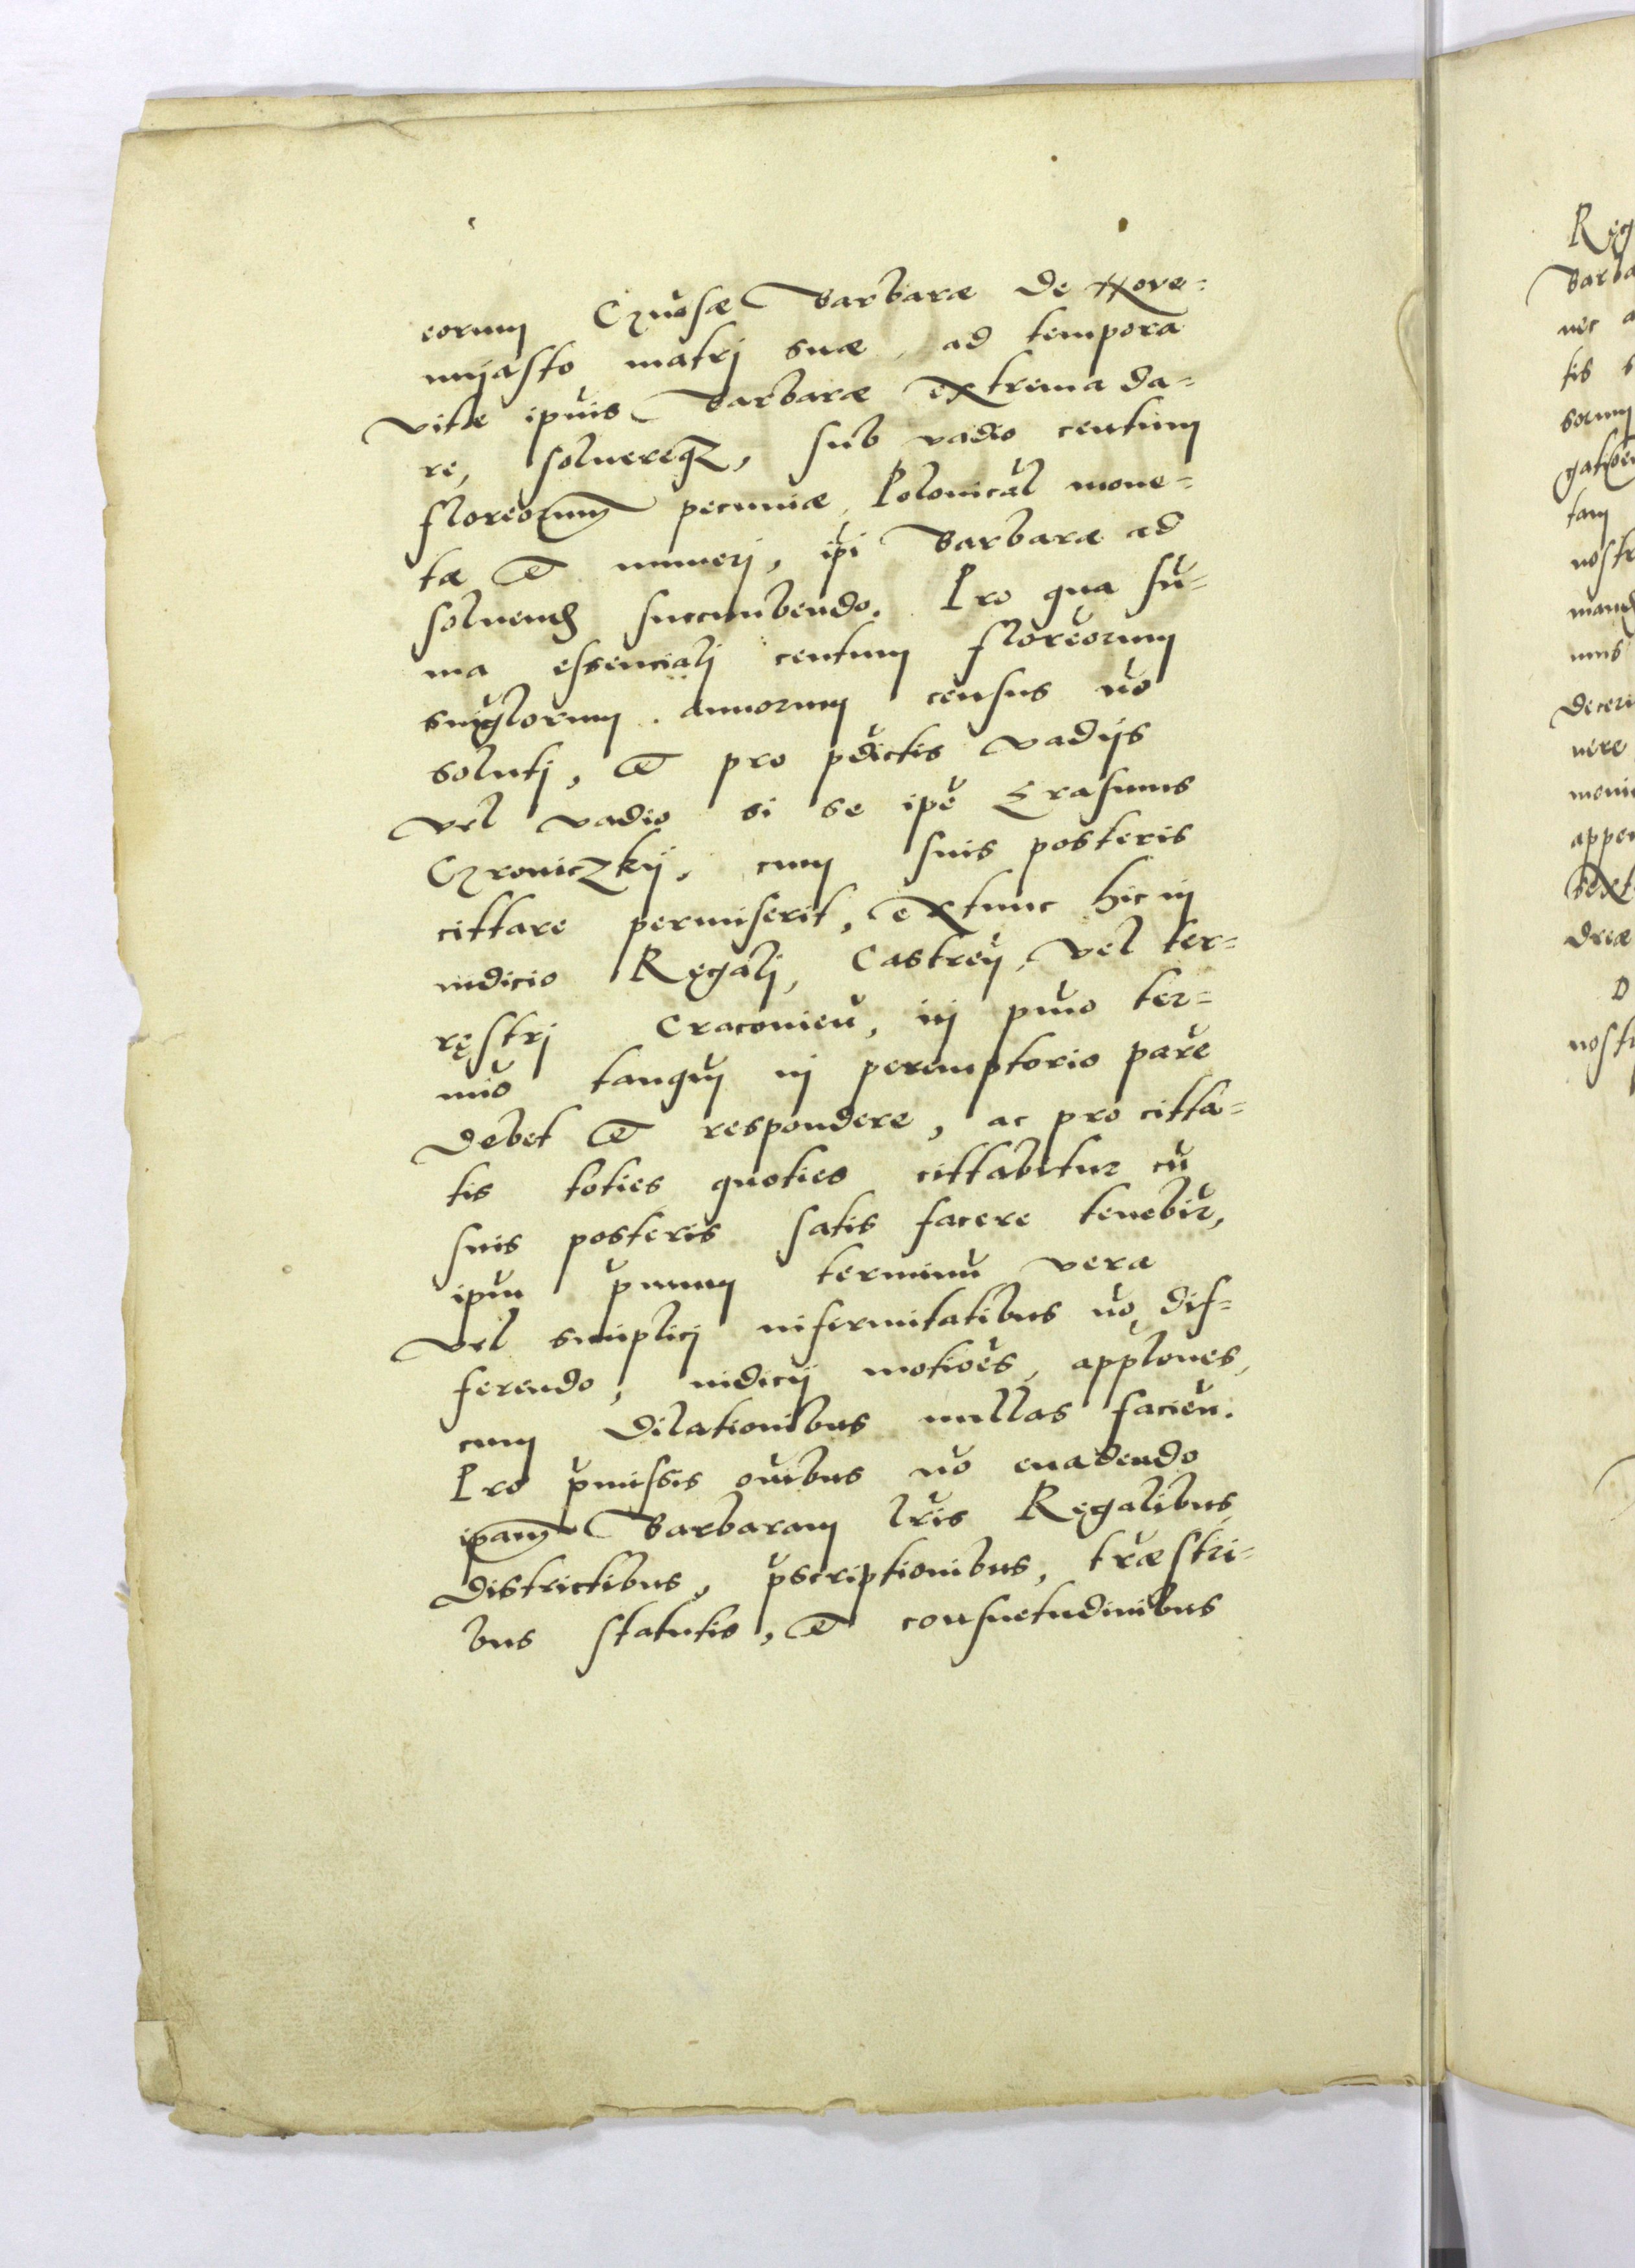 eorum Gnosæ Barbaræ de Nove=
myasto matrj suæ, ad tempora
vitæ ipius Barbaræ extrema da=
re, soluereqz, sub vadio centum
florenorum pecuniæ Polonical mone=
tæ et numerj, ipi Barbaræ ad
soluend succumbendo. Pro qua su=
ma essencialj centum florenorum
singlorum annorum census no
solutj, et pro pdictis vadijs
vel vadio si se ipe Erasmus
Czroniczkij, cum suis posteris
cittare permiserit, extunc hic in
iudicio Regalj, Castren, vel ter=
restrj Cracovien, in pmo ter=
mio tanqum in peremptorio pare
debet et respondere, ac pro citta=
tis toties quoties cittabitur cu
suis posteris satis facere tenebir,
ipm pmum terminu vera
vel simplicj infermitatibus no dif=
ferendo, iudicij motioes, applones,
cum dilationibus nullas facien.
Pro pmissis oibus no euadendo
ipam Barbaram lris Regalibus
districtibus, pscriptionibus, træstri=
bus statutis, et consuetudinibus
Reg
Barba
nec a
tis s
sorum
gation
tam
nostr
mand
mus
decern
nere
moni
appen
sext
dreæ
D
nostr